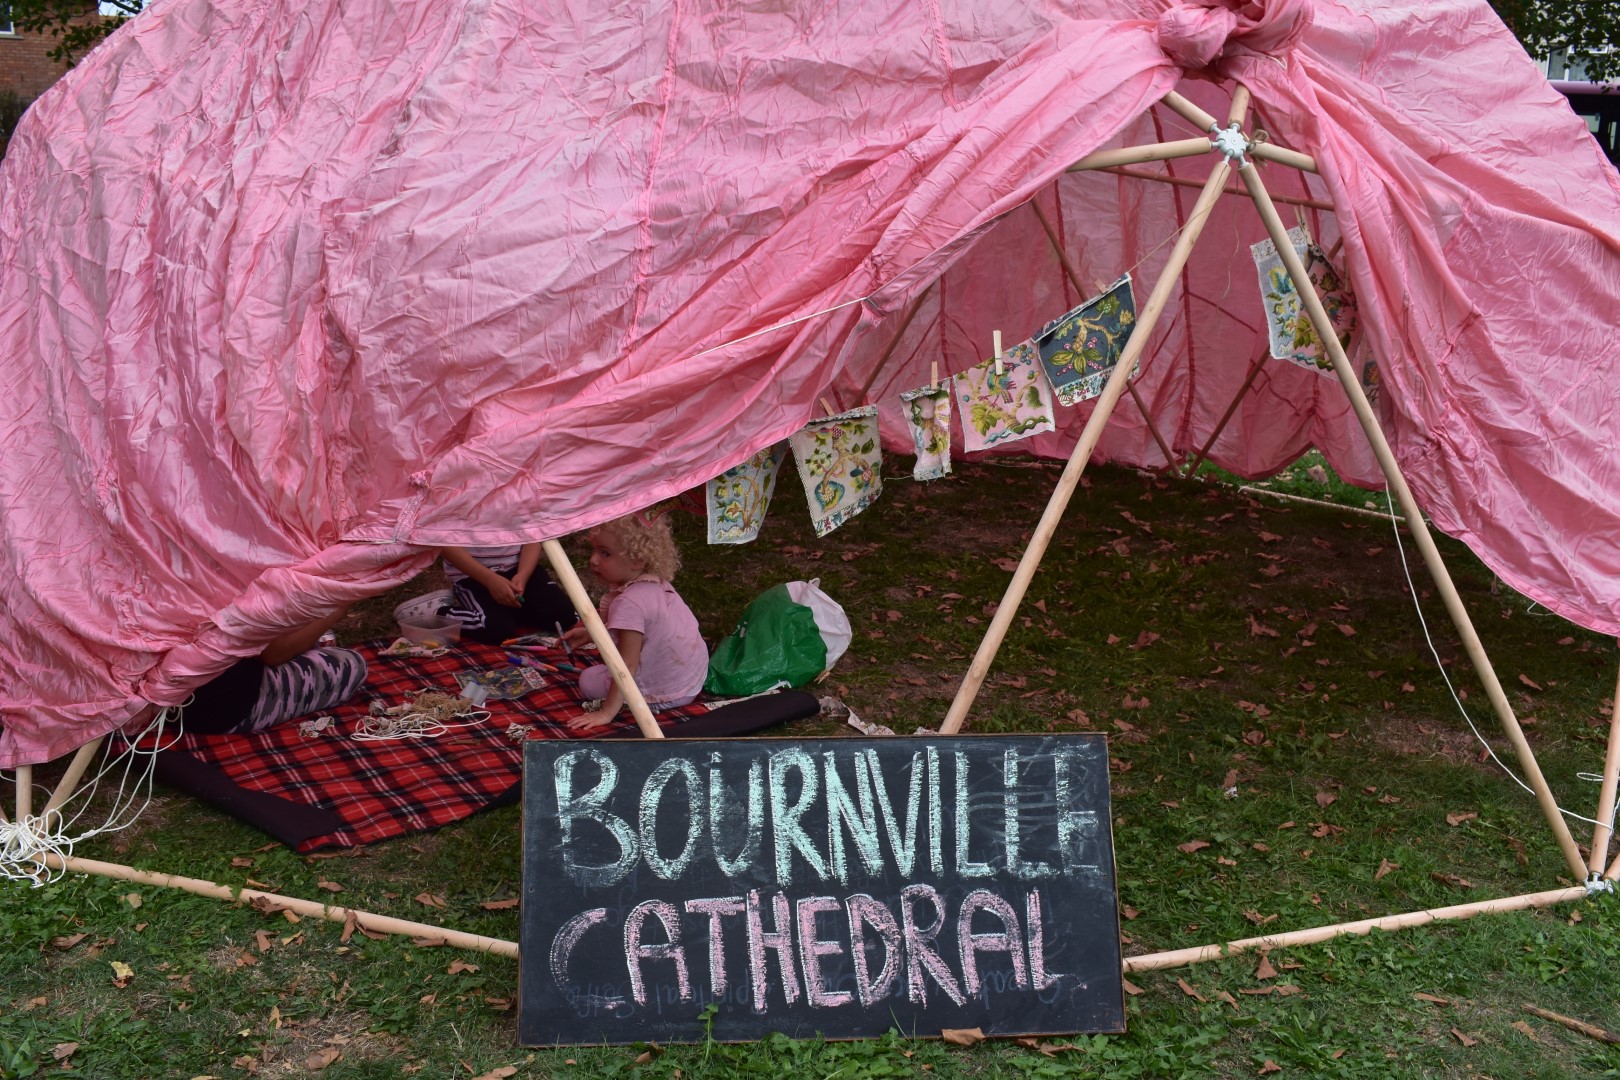 BOURNVILLE
CATHEDRAL